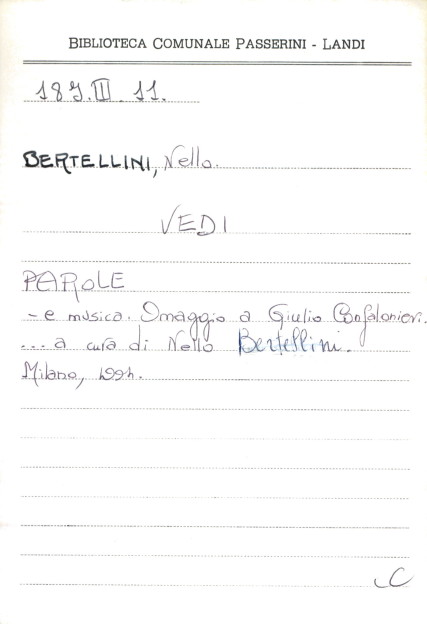 BIBLIOTECA COMUNALE PASSERINI - LANDI
187.III.11.
BERTELLINI, Nello.
VEDI
PAROLE
- e musica. Omaggio a Giulio Confalonieri.
... a cura di Nello Bertellini.
Milano,
C